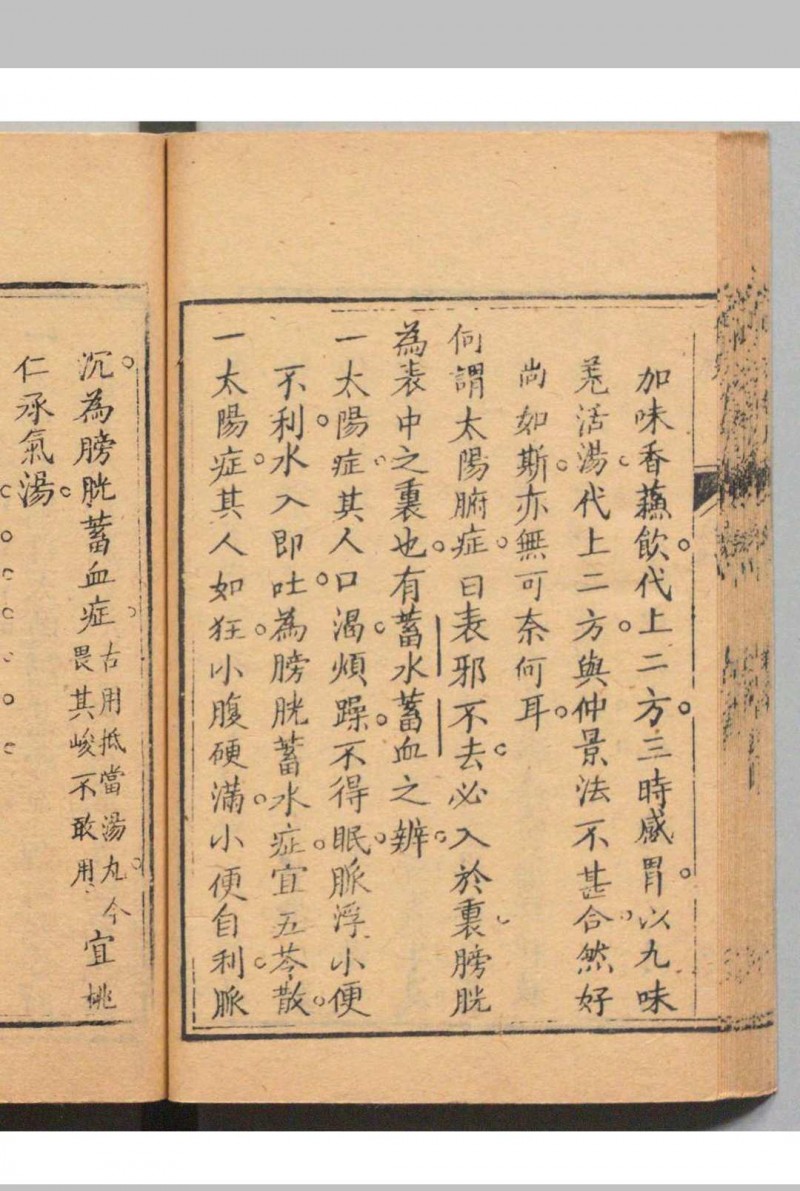 加味香蘓飲代上二方三時感冒以九味
羗活湯代上二方與仲景法不甚合然好
尚如斯亦無可奈何耳
何謂太陽腑症曰表邪不去必入於裏膀胱
為表中之裏也有蓄水蓄血之辨
一太陽症其人口渴煩躁不得眠脈浮小便
不利水入即吐為膀胱蓄水症宜五苓散
一太陽症其人如狂小腹硬滿小便自利脈
沉為膀胱蓄血症古用抵當湯丸今宜桃
畏其峻不敢用
仁承氣湯